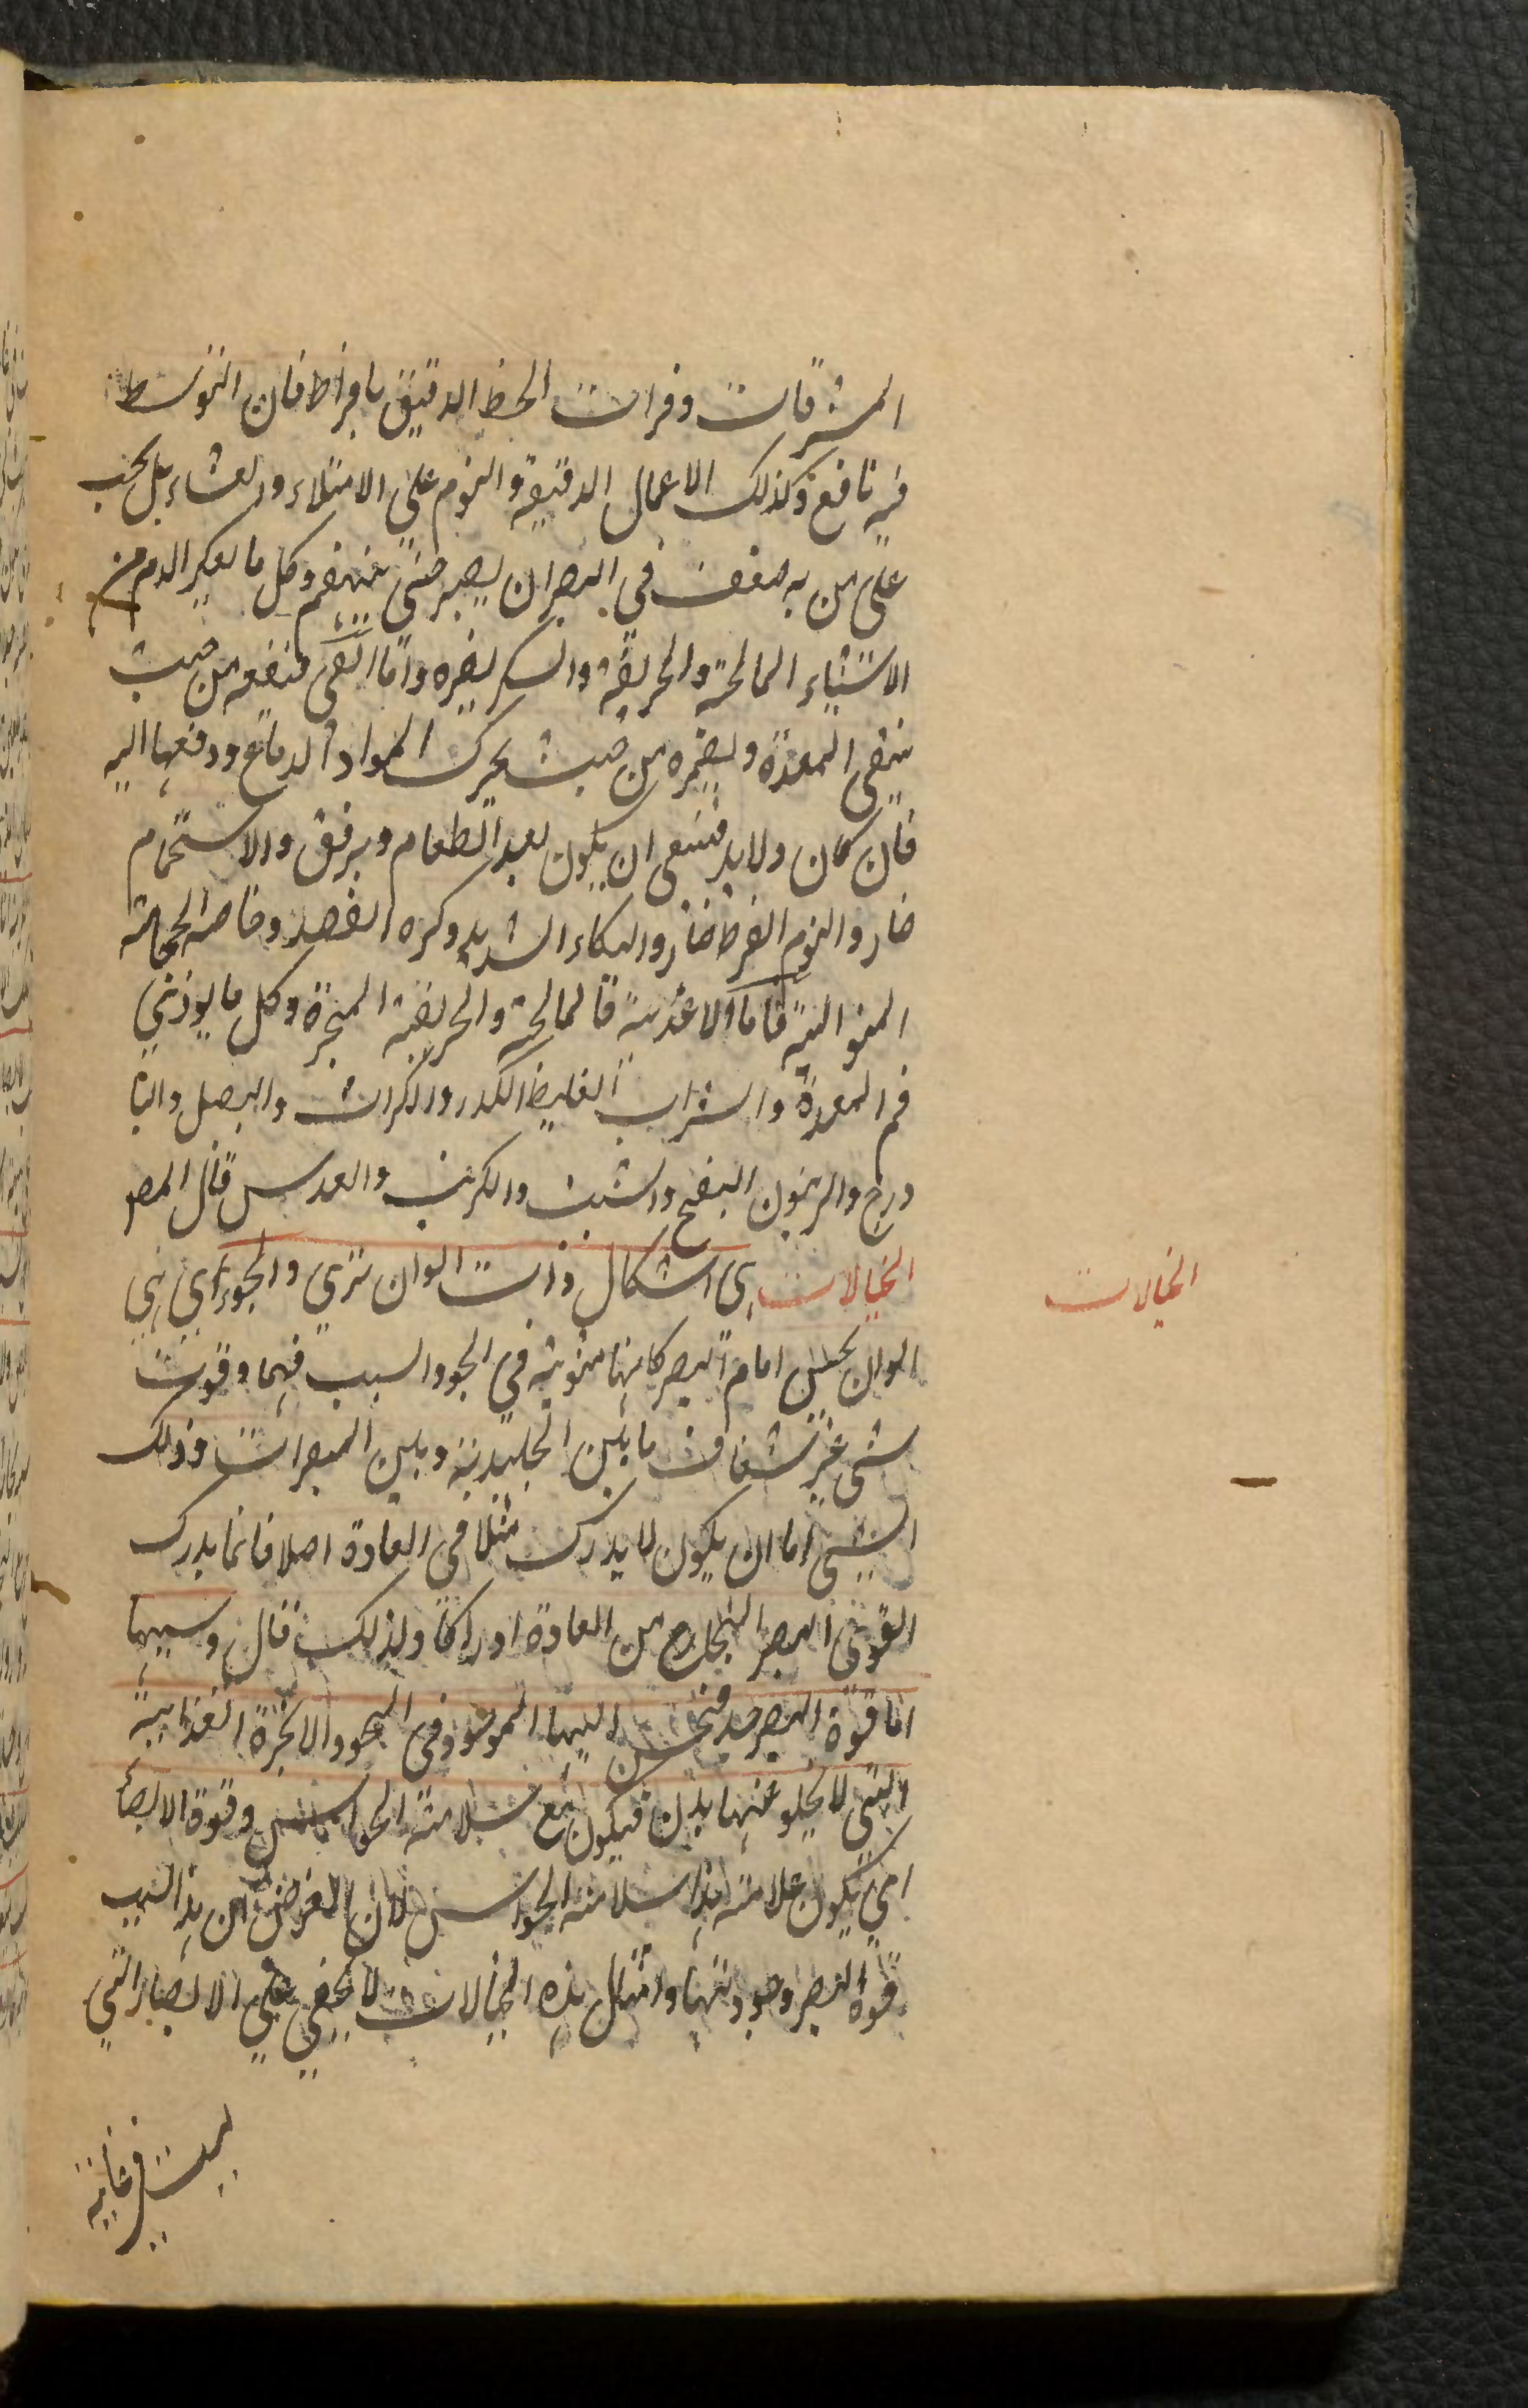 المشرقات وقراءت الخط الدقيق بافراط فان التوسط
فيه نافع وكذلك الاعمال الدقيقة والنوم على الامتلاء والعشاء بل يجب
على من به ضعف في البصر ان يصبر حتى ينهضم وكل ما يعكر الدم من
الاشياء المالحة والحريفة والسكر يضره واما القى فينفعه من حيث
ينقى المعدة ويضره من حيث يحرك المواد الدماغ ودفعها اليه
فان كان ولابد فينبغى ان يكون بعد الطعام وبرفق والاستحمام
ضار والنوم المفرط ضار والبكاء الشديد وكثرة الفصد وخاصة الحجامة
المتوالية فاما الاغذية فالمالحة والحريفة المبخرة وكل ما يوذي
فم المعدة والشراب الغليظ الكدر والكراث والبصل والبا
دروج والزيتون النضيج والشبت والكرنب والعدس قال المص
الخيالات هى اشكال ذات الوان ترى والجو اي هي
الوان يحس امام البصر كانها مثبوثة في الجو والسبب فيها وقوف
شى غير شفاف ما بين الجليدية وبين المبصرات وذلك
الشى اما ان يكون لا يدرك مثلا في العادة اصلا فانما يدرك
القوى البصر الخارج من العادة ادراكا ولذلك قال وسببها
اما قوة البصر جدا فيحس الهباء الموجود في الجو والابخرة الغذائية
التى لا يخلو عنها بدن فيكون مع سلامة الحواس وقوة الابصا
اي يكون علامته هذا سلامة الحواس لان الغرض ان هذا السبب
قوة البصر وجودتها وامثال هذه الخيالات لا يخفى على الابصار التي
ليست في غاية
الخيالات